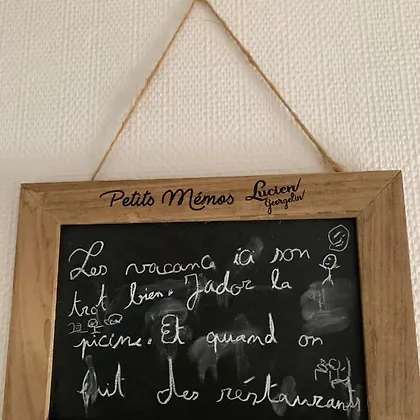 Petits Mémos Lucien Georgelin
Les vacanc ici son
trot bien. J'ador la
picine. Et quand on
fait des réstaurants